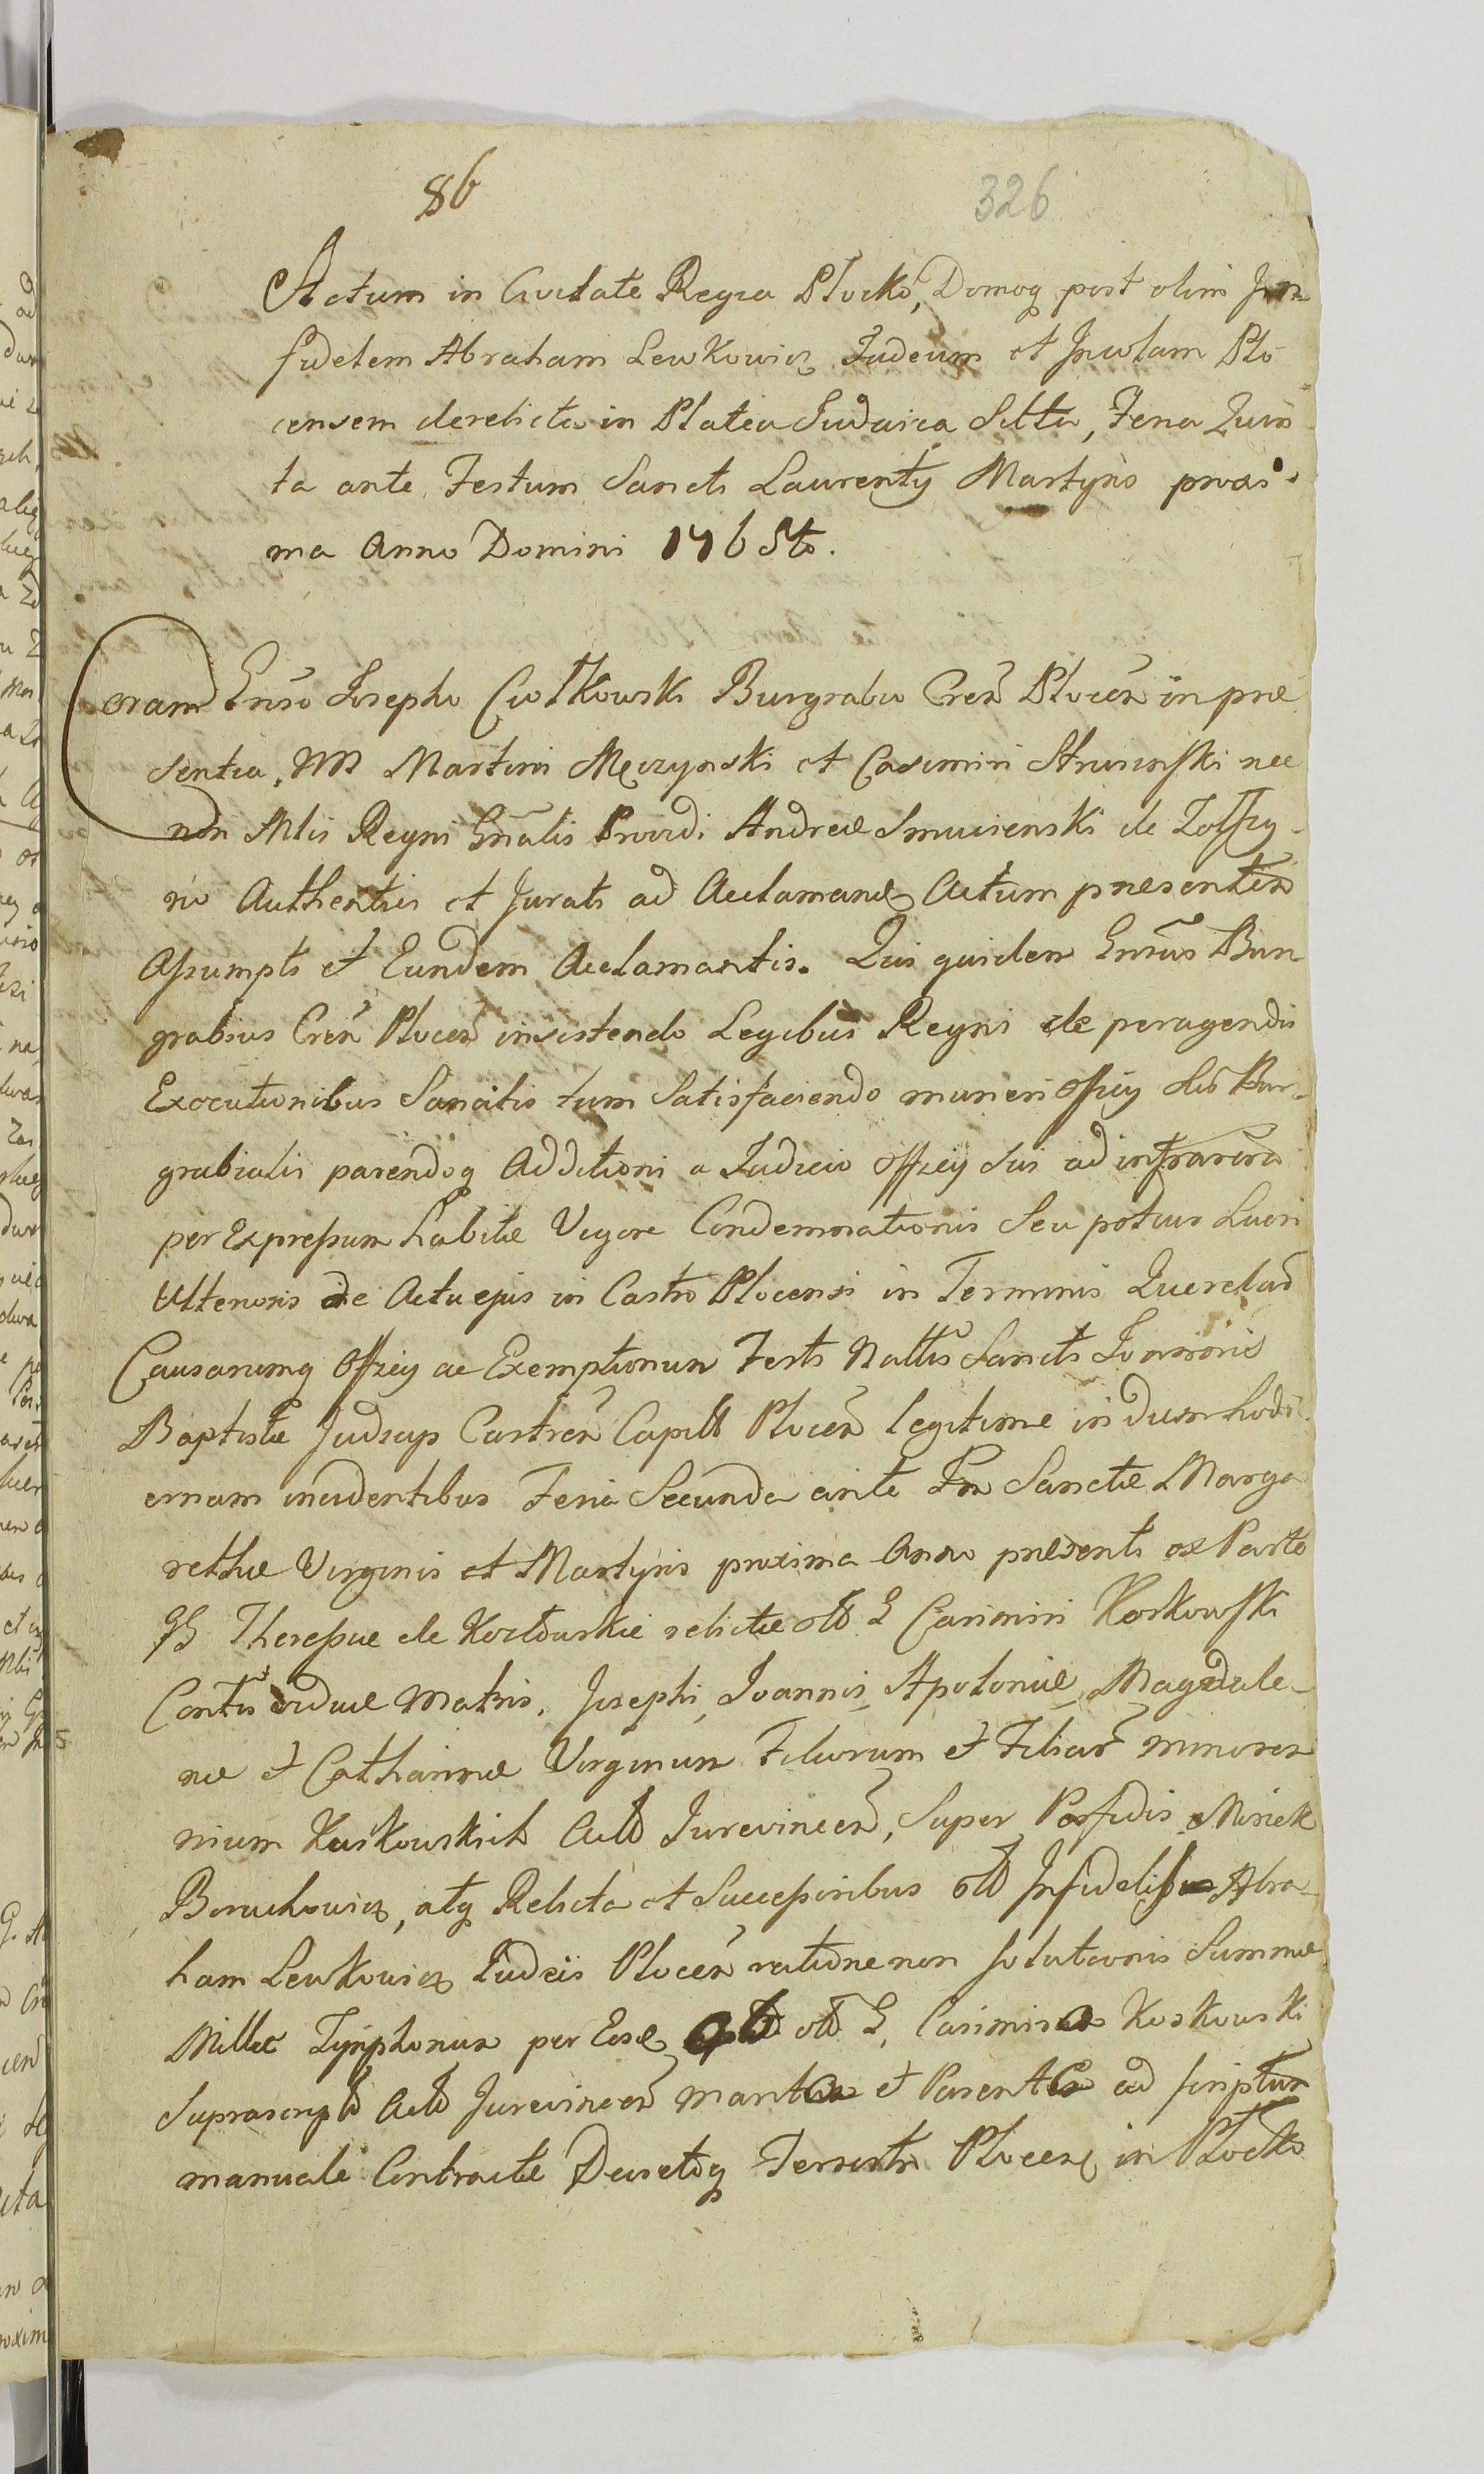 86
326
Actum in Civitate Regia Plocko, Domoq post olim In
fidelem Abraham Lewkowicz Judeum et Incolam Plo
censem derelicta in Platea Judaica Sitta, Feria Quin
ta ante Festum Sancti Laurentij Martyris proxi
ma Anno Domini 1765to.
Coram Gnso Josepho Ciołkowski Burgrabio Cren Plocen in præ
sentia, NN Martini Męczynski et Casimiri nec
non Mlis Regni Gnalis Providi Andreæ Smuiewski de
no Authentici et Jurati ad Acclamand Actum præsentem
Assumpti et Eundem Acclamantis. Qui quidem Gnsus Bur
grabius Cren Plocen insistendo Legibus Regni de peragendis
Executionibus Sancitis tum Satisfaciendo muneri Officij sui Bur-
grabialis parendoq Additioni a Judicio Officij sui ad infrascra
per Expressum habitæ Vigore Condemnationis Seu potius Lucri
Ulterioris de Actu ejus in Castro Plocensi in Terminis Querelar
Causarumq Officij ac Exemptionum Festi Nattis Sancti Joannis
Baptistæ Judicijs Castren Capitt Plocen legitime in diem hodi
ernam incidentibus Feria Secunda ante Fm Sanctæ Marga
rethæ Virginis et Martyris proxima Anno præsenti ex Parte
GG Theressæ de relictæ olt G Casimiri Koskowski
Contis viduæ Matris, Josephi, Joannis, Apoloniæ, Magdale-
næ et Catharinæ Virginum Filiorum et Filiar minoren
nium Koskowskich Actt Jurevincen, Super Perfidis Misiek
Boruchowicz, atq Relicta et Successoribus olt Infidelis Abra
ham Lewkowicz Judæis Plocen ratione non solutionis Summæ
Mille Tynphonum per Eosd ab olt G, Casimiro Koskowski
Suprascript Actt Jurevincen marito et Parente ad scriptum
manuale Contractæ Decretoq Terrestri Plocen in Plocko